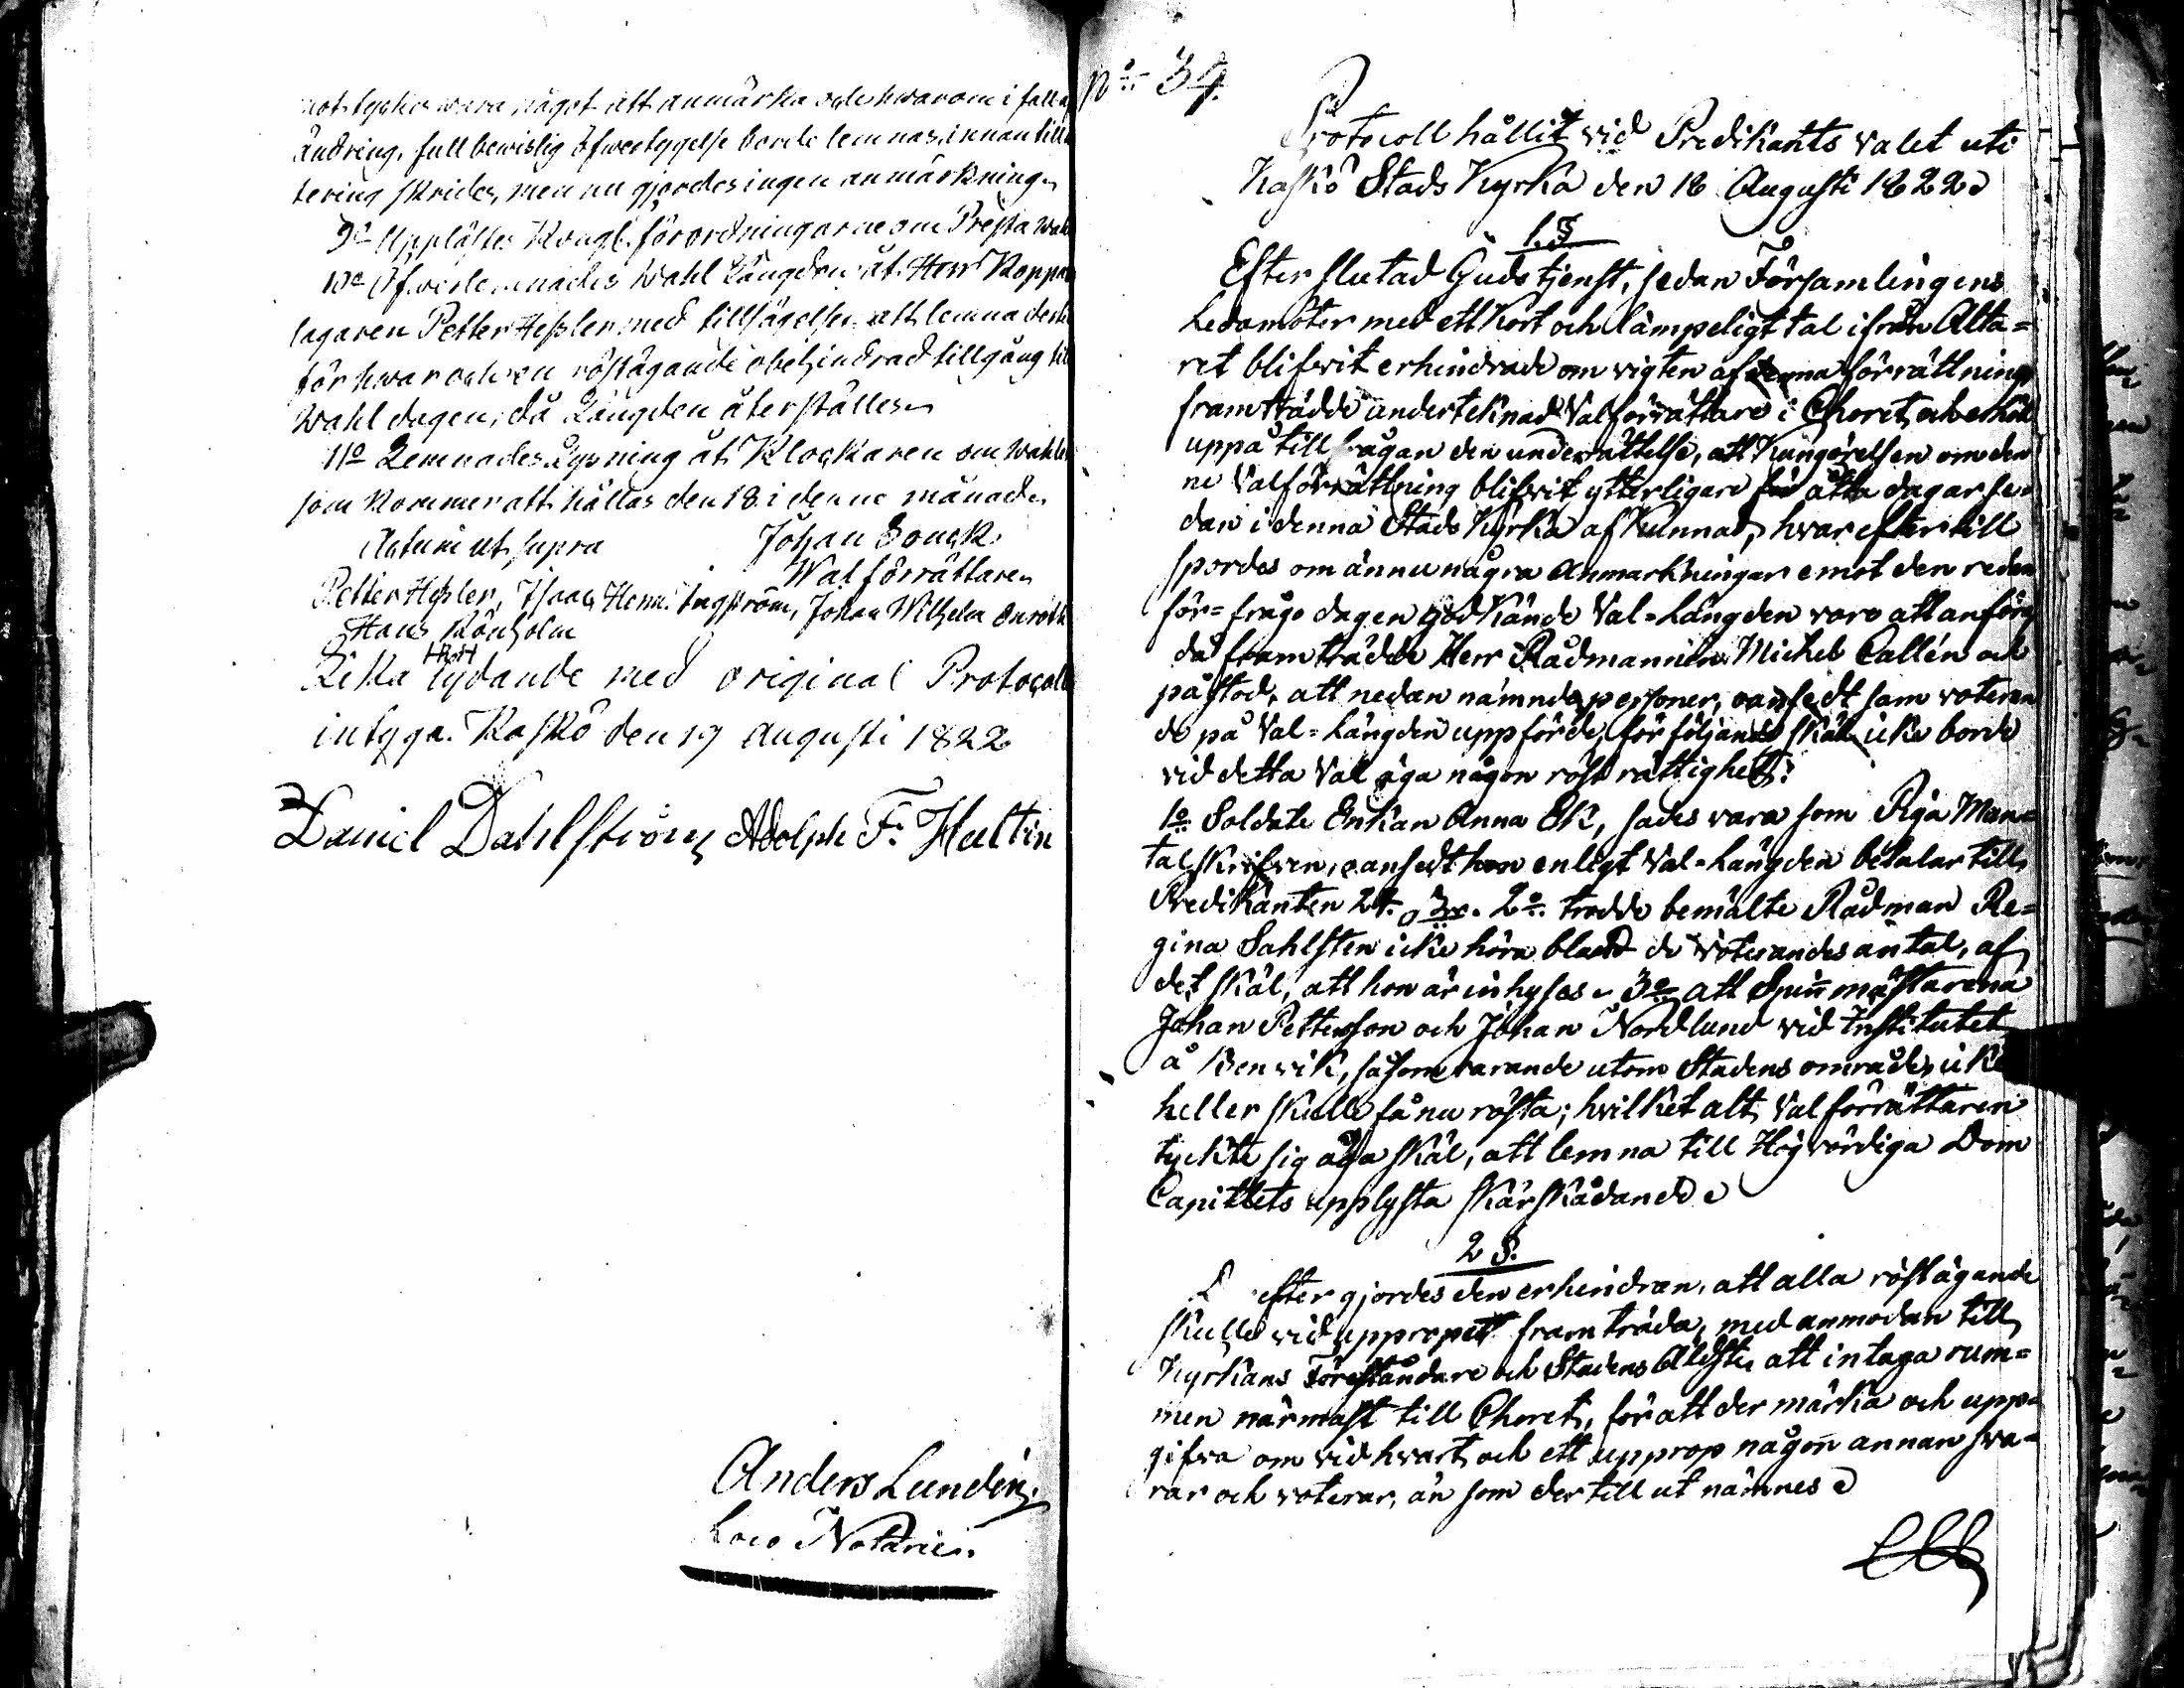 något att anmärka och hwarom i fall af
ändring, full bewislig öfwertygelse borde lemnas, innan till
tering skrides, men nu gjordes ingen anmärkning.
9o Upplästes Kongl. förordningarne om Presta wahl
10o Öfwerlemnades Wahl Längden åt Herr Koppar
slagaren Petter Hessler med tillsägelse att lemna den
för hwar och en röstägande obehindrad tillgång till
Wahl dagen, då Längden återställes.
11o Lemnades Lysning åt Klockaren om Wahlet
som kommer att hållas den 18 i denne månad.
Actum ut supra Johan
Walförrättare.
Petter Hessler, Isaac Henr. Ingström, Johan Wilhelm Enroth
Hans Rönholm
HRH
Lika lydande med original Protocoll
intyga. Kaskö den 19 Augusti 1822
Daniel Dahlström Adolph F. Hultin
Anders Lundén.
Loco Notarie.
No 34.
Protocoll hållit vid Predikants valet uti
Kaskö Stads Kyrka den 18 Augusti 1822.
1.§
Efter slutad Gudstjenst, sedan Församlingens
Ledamöter med ett kort och lämpeligt tal ifrån Alta=
ret blifvit erhindrade om vigten af denna förrättning
framträdde undertecknad Valförrättare i Choret, och erhöll
uppå tillfrågan den underrättelse, att Kungörelsen om den
ne Valförrättning blifvit ytterligare för åtta dagar se=
dan i denna Stads Kyrka afkunnad, hvarefter till
spordes om ännu några Anmärkningar emot den redan
för=frågo dagen godkände Val=Längden voro att anföra
då framträdde Herr Rådmannen Michel Callén och
påstod, att nedan nämnde personer, oansedt som voteran
de på Val=Längden uppförde, för följande skäl icke borde
vid detta Val äga någon röst rättighet:
1o Soldate Enkan Anna Ek, sades vara som Piga Man=
talskrifven, oansedt hon enligt Val=Längden betalar till
Predikanten 24. 2o trodde bemälte Rådman Re=
gina Sahlsten icke höra bland de Voterandes antal, af
det skäl, att hon är inhyses. 3o att Spinnmästarena
Johan Petterson och Johan Nordlund vid Institutet
å Benvik, såsom varande utom Stadens område, icke
heller skulle få nu rösta; hvilket alt Valförrättaren
tyckte sig äga skäl, att lemna till Högvördiga Dom
Capitlets upplysta skärskådande.
2 §.
efter gjordes den erhindran, att alla röstägande
skulle vid uppropet framträda, med anmodan till
Kyrkans Föreståndare och Stadens Äldste att intaga rum=
men närmast till Choret, för att der märka och upp=
gifva om vid hvart och ett upprop någon annan sva=
rar och voterar, än som dertill ut nämnes.